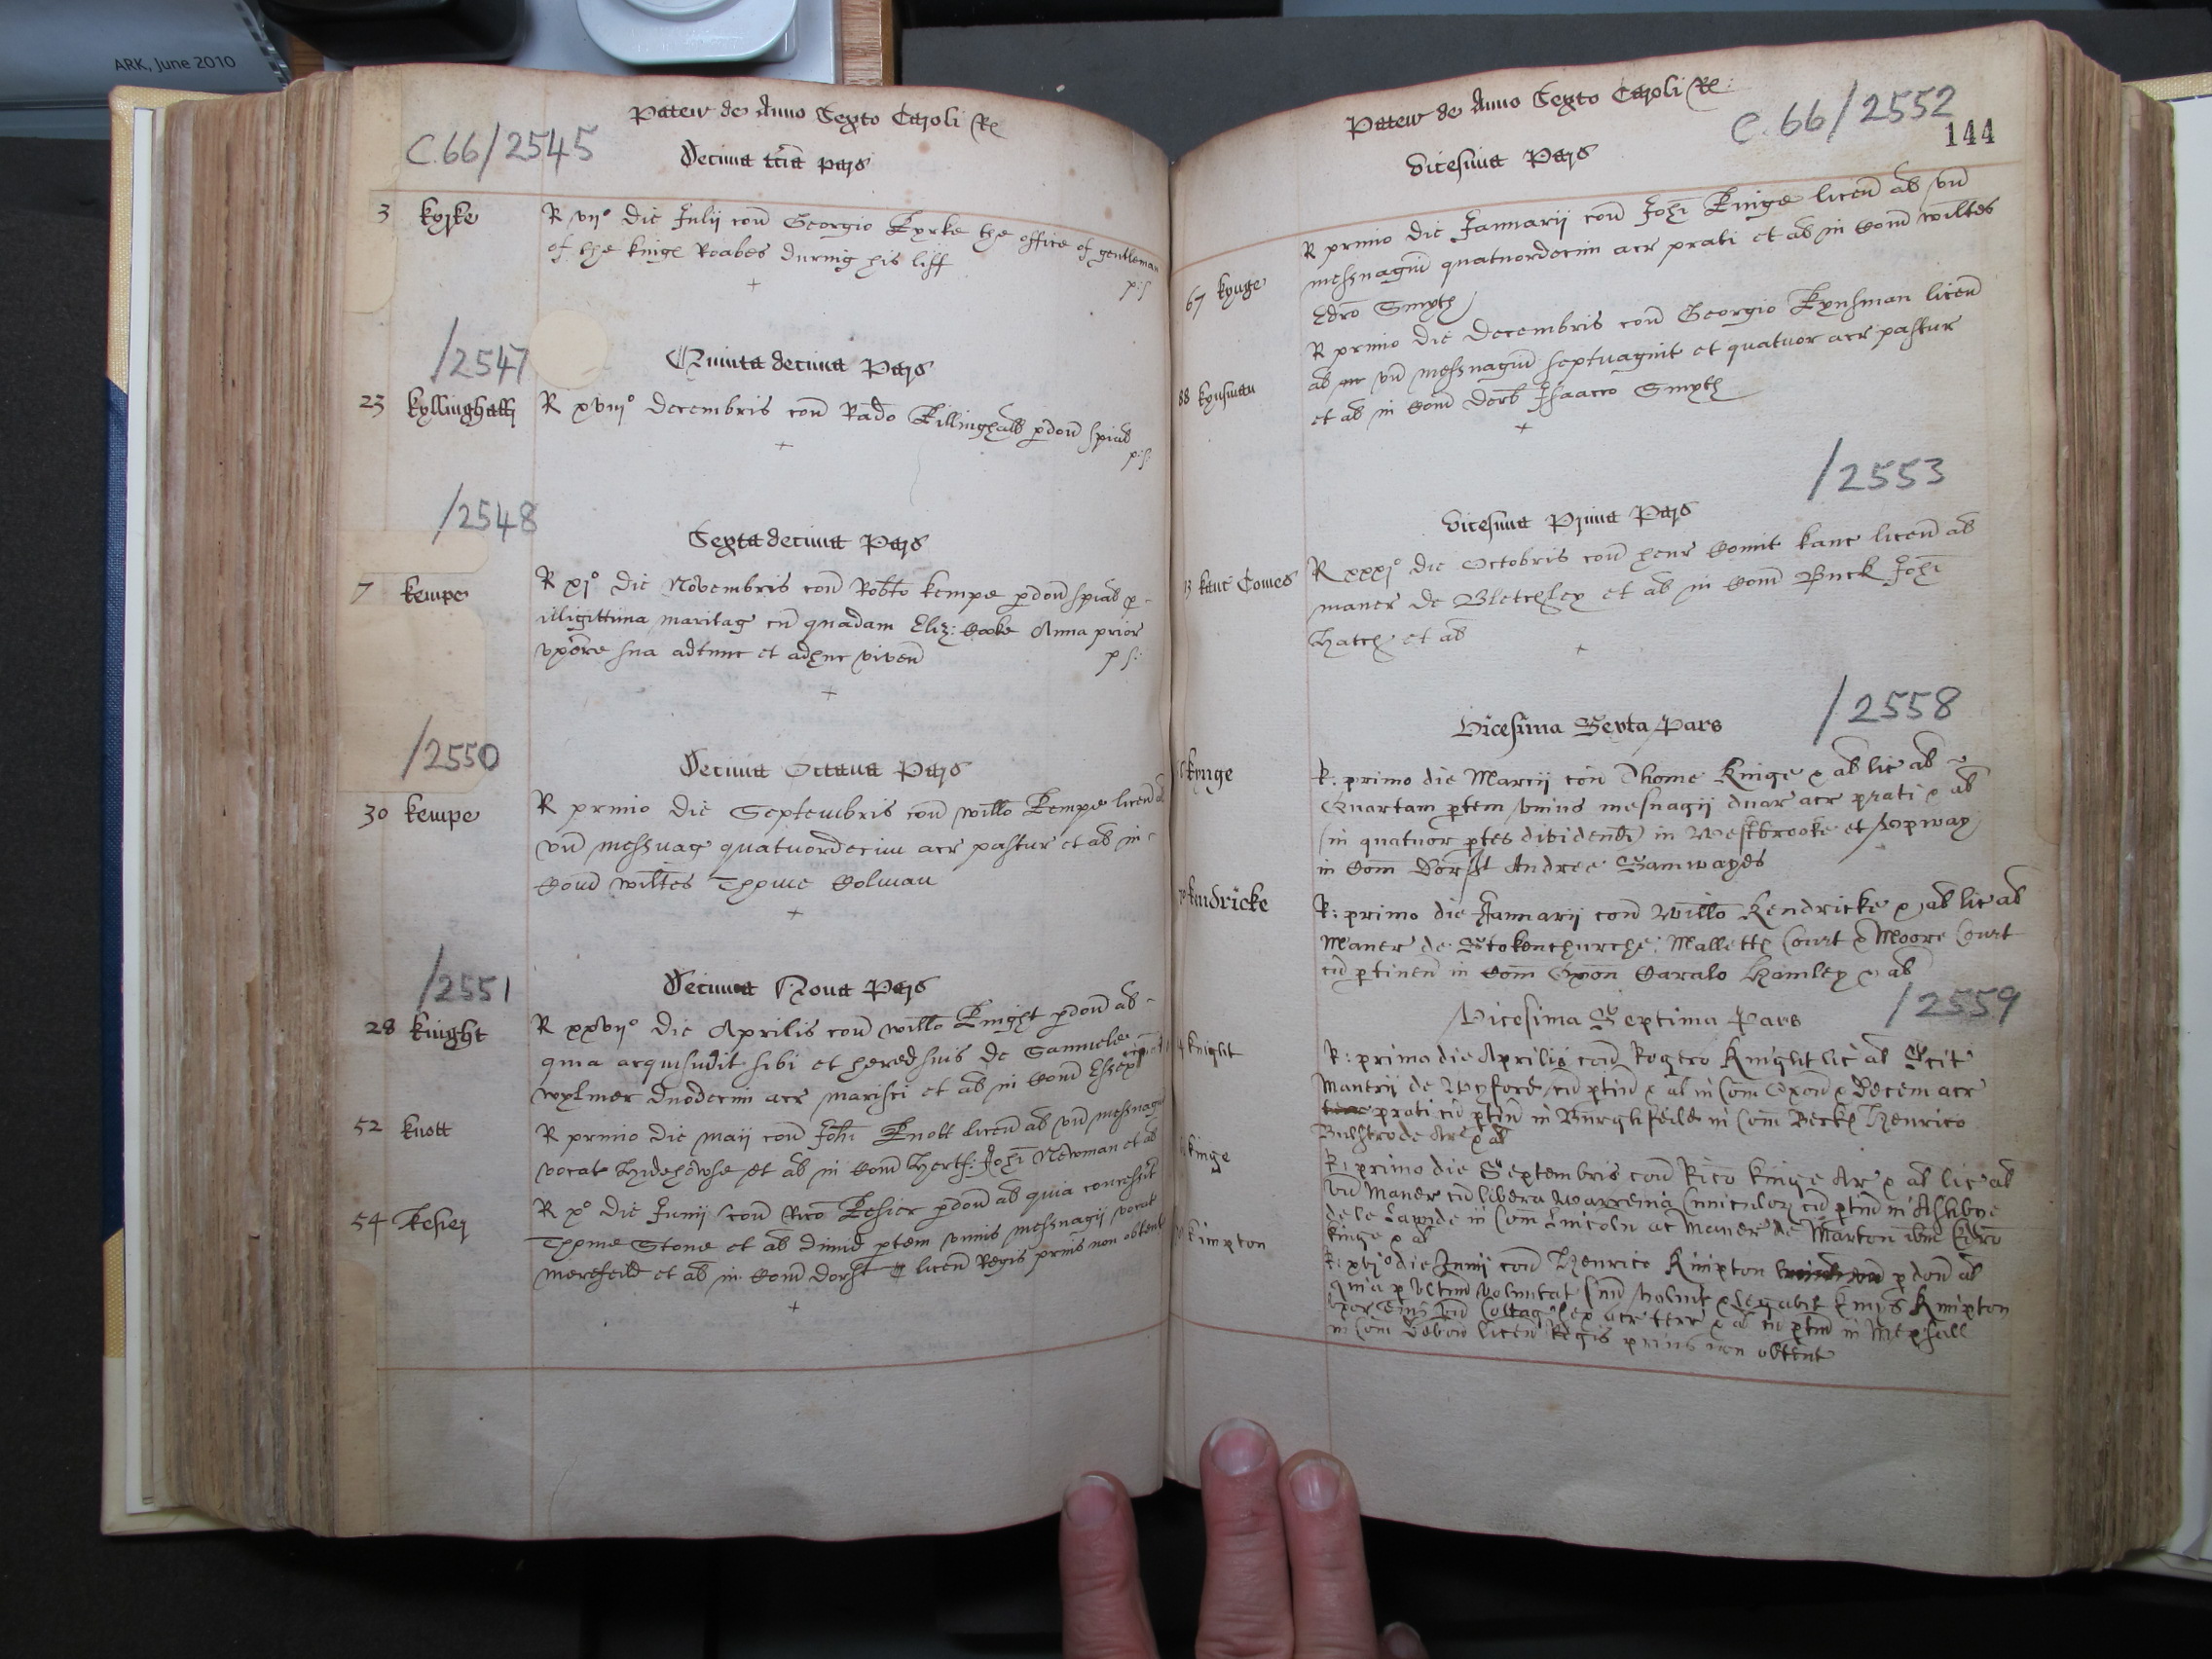 ARK, June 2010
Paten de Anno Sexto Caroli Re
C.66/2545
Decima tcia pars
3 Kyrke
R vij° die Julij con Georgio Kyrke the office of gentleman
of the king Roabes during his liff
p:s
/2547
Quinta decima Pars
23 Kyllinghall
R xviij° Decembris con Rado Killinghall pdon spial
p:s:
/2548
Sexta decima Pars
7 Kempe
R xj° die Novembris con Robto Kempe pdon spial p
illigittima maritag cu quadam Eliz: Cooke Anna prior
vxore sua adtunc et adhuc viven
p s:
/2550
Decima Octava Pars
30 Kempe
R primo die Septembris con Willo Kempe licen al
vn messuag quatuordecim acr pastur et al in
Com Wiltes Thome Colman
/2551
Decima Nona Pars
28 Knight
R xxvij° die Aprilis con Willo Knight pdon al
quia acquisivit sibi et hered suis de Samuele
Wylmer duodecim acr marisci et al in Com Essex
52 Knott
R primo die Maij con Johi Knott licen al vn messuag
vocat Hydehowse et al in Com Hertf: Johi Newman et al
54 Kesier
R x° die Junij con Rico Kesier pdon al quia concessit
Thome Stone et al dimid ptem vnius messuagij vocat
Merefeild et al in Com Dorst licen Regis prius non obtent
Paten de Anno Sexto Caroli Re:
C.66/2552
144
Vicesima Pars
67 Kynge
R primo die Januarij con Johi Kinge licen al vn
messuagiu quatuordecim acr prati et al in Com Wiltes
Edro Smyth
88 Kynsman
R primo die Decembris con Georgio Kynsman licen
al vn messuagiu septuagint et quatuor acr pastur
et al in Com Derb Isaacco Smyth
/2553
Vicesima Prima Pars
13 Kanc Comes
R xxxj° die Octobris con Henr Comit Kanc licen al
maner de Bletchley et al in Com Buck Johi
Hatch et al
/2558
Vicesima Sexta Pars
Kynge
R: primo die Marcij con Thome Kinge & al lic al
Quartam ptem vnius mesuagij duar acr prati & al
(in quatuor ptes dividend) in Westbrooke et Vpway
in Com Dorst Andree Samwayes
Kendricke
R: primo die Januarij con Willo Kendricke & al lic al
Maner de Stokenchurche, Malletts Court & Moore Court
cu ptinen in Com Oxon Saralo Hamley & al
/2559
Vicesima Septima Pars
Knight
R: primo die Aprilis con Rogero Knight lic al Scit
Manerij de Wyfore cu ptin & al in Com Oxon & Decem acr
prati cu ptin in Burghfeild in Com Berck Henrico
Bulstrode Ar & al
Kinge
R: primo die Septembris con Rico Kinge Ar & al lic al
vn Maner cu libera Warrenia Cuniculor cu ptin in Ashbye
de le Launde in Com Lincoln ac Maner de Marton ibm Edro
Kinge & al
Kimpton
R: xvj° die Junij con Henrico Kimpton pdon al
quia p vltim voluntat sua voluit & legavit Kimpton
vxor eius vn Cottag sex acr terr & al cu ptin in Mepsall
in Com licen Regis prius non obtent